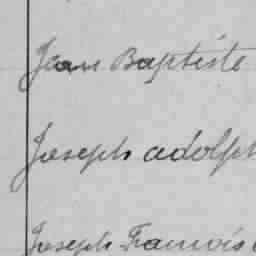 Jean Baptiste
Joseph adolph
Joseph Francois